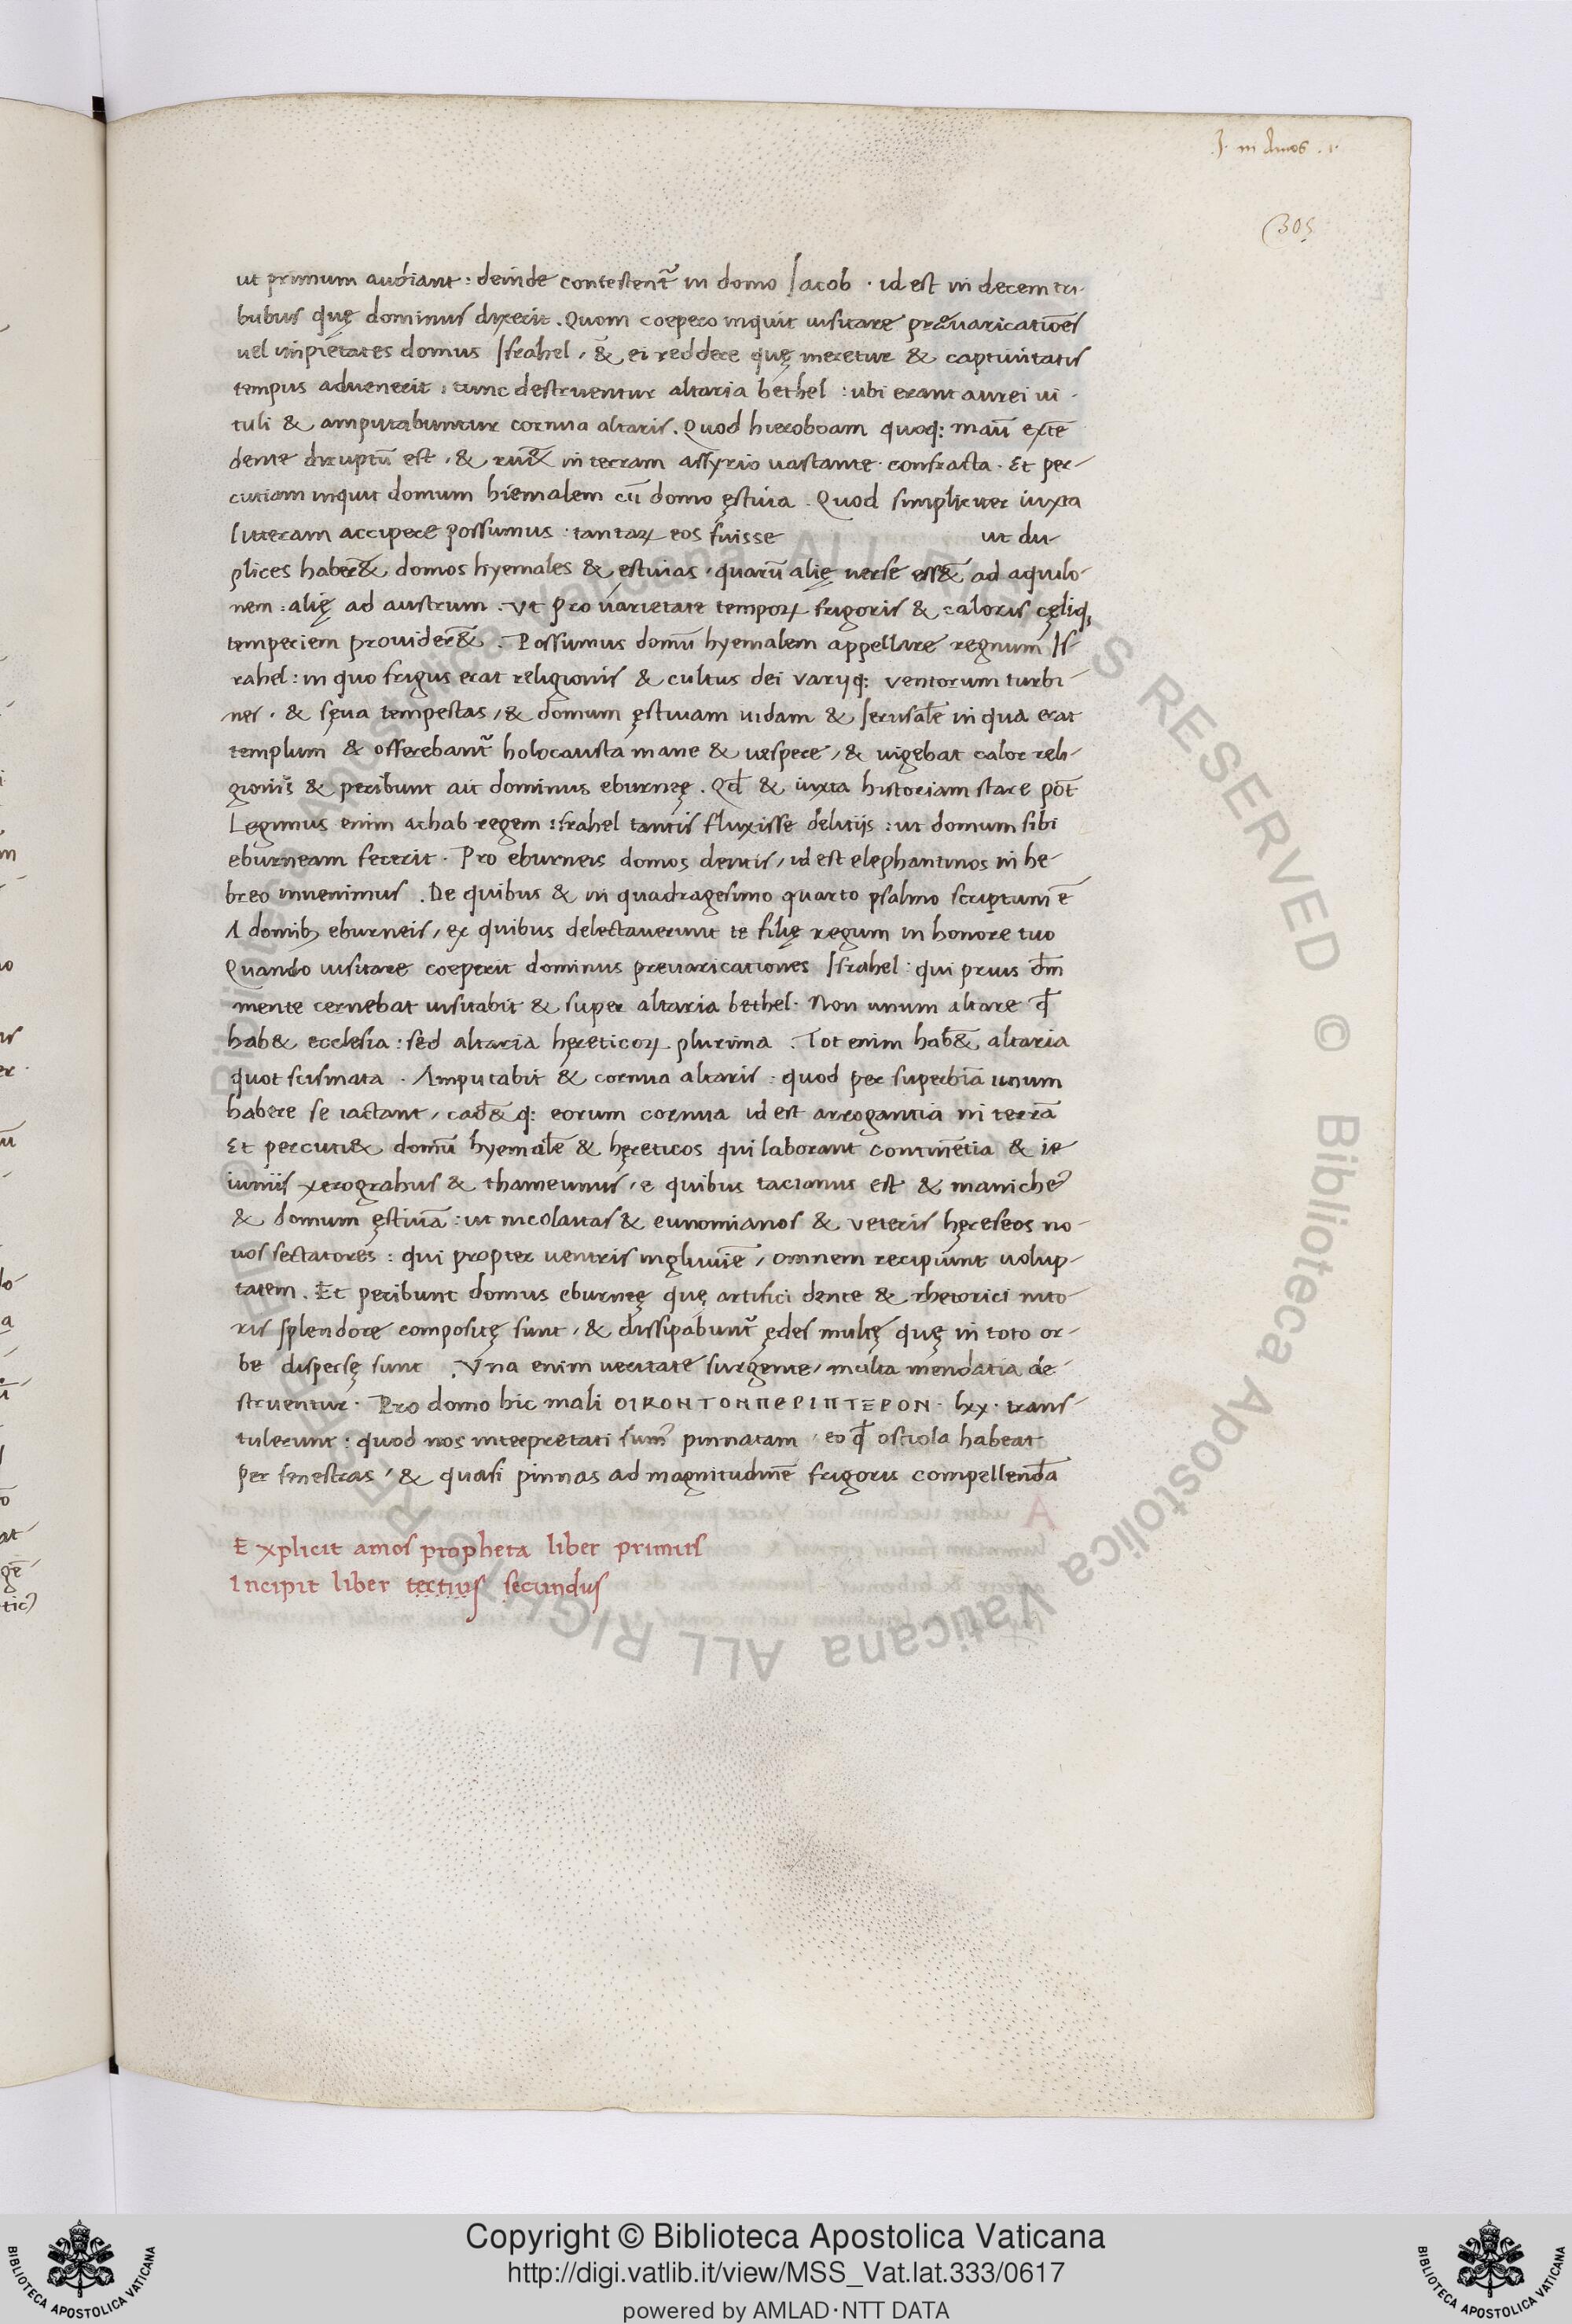 J. in Amos .1.
305
ut primum audiant : deinde contestent᷑ in domo Iacob · id est in decem tri-
bubus quę dominus dixerit . Quom coepero inquit uisitare pręuaricatiōes
uel inpietates domus Israhel , & ei reddere quę meretur & captiuitatis
tempus aduenerit , tunc destruentur altaria bethel : ubi erant aurei ui -
tuli & amputabuntur cornua altaris . Quod hieroboam quoq: manū extē
dente diruptū est , & ruī& in terram assyrio uastante · confracta . Et per-
cutiam inquit domum hiemalem cū domo ęstiua . Quod simpliciter iuxta
litteram accipere possumus : tantaꝝ eos fuisse ut du-
plices haber&̄ domos hyemales & ęstiuas , quarū alię uersę ess&̄ ad aquilo-
nem : alię ad austrum . Vt pro uarietate tempoꝝ frigoris & caloris cęliq;
temperiem prouider&̄ . Possumus domū hyemalem appellare regnum Is-
rahel : in quo frigus erat religionis & cultus dei varijq: ventorum turbi-
nes , & sęua tempestas , & domum ęstiuam iudam & Ierusalē in qua erat
templum & offerebant᷑ holocausta mane & uespere , & uigebat calor reli-
gionis & peribunt ait dominus eburneę . Qđ & iuxta historiam stare pōt
Legimus enim achab regem israhel tantis fluxisse delitijs : ut domum sibi
eburneam fecerit . Pro eburneis domos dentis , id est elephantinos in he-
breo inuenimus . De quibus & in quadragesimo quarto psalmo scriptum ē
A domibꝫ eburneis , ex quibus delectauerunt te filię regum in honore tuo
Quando uisitare coeperit dominus preuaricationes Israhel : qui prius dm̄
mente cernebat uisitabit & super altaria bethel . Non unum altare qđ
hab& ecclesia : sed altaria hęreticoꝝ plurima . Tot enim hab&̄ altaria
quot scismata . Amputabit & cornua altaris : quod per superbiā unum
habere se iactant , cad&̄ q: eorum cornua id est arrogantia in terrā
Et percuti& domū hyemalē & hęreticos qui laborant continētia & ie
iuniis xerograhus & thameunus , e quibus tacianus est & maniche᷒
& domum ęstiuā : ut nicolaitas & eunomianos & veteris hęreseos no-
uos sectatores : qui propter uentris ingluuiē , omnem recipiunt uolup-
tatem . Et peribunt domus eburneę quę artifici dente & rhetorici nito-
ris splendore compositę sunt , & dissipabunt᷑ ędes multę quę in toto or-
be dispersę sunt . Vna enim ueritate surgente , multa mendatia de-
struentur . Pro domo hic mali ΟΙΚΟΝΤΟΝΠΕΡΙΠΤΕΡΟΝ · lxx · trans-
tulerunt : quod nos interpretati sum᷒ pinnatam , eo qđ ostiola habeat
per fenestras , & quasi pinnas ad magnitudinē frigoris compellendā
Explicit amos propheta liber primus
Incipit liber tertius secundus
Copyright © Biblioteca Apostolica Vaticana
http://digi.vatlib.it/view/MSS_Vat.lat.333/0617
powered by AMLAD·NTT DATA